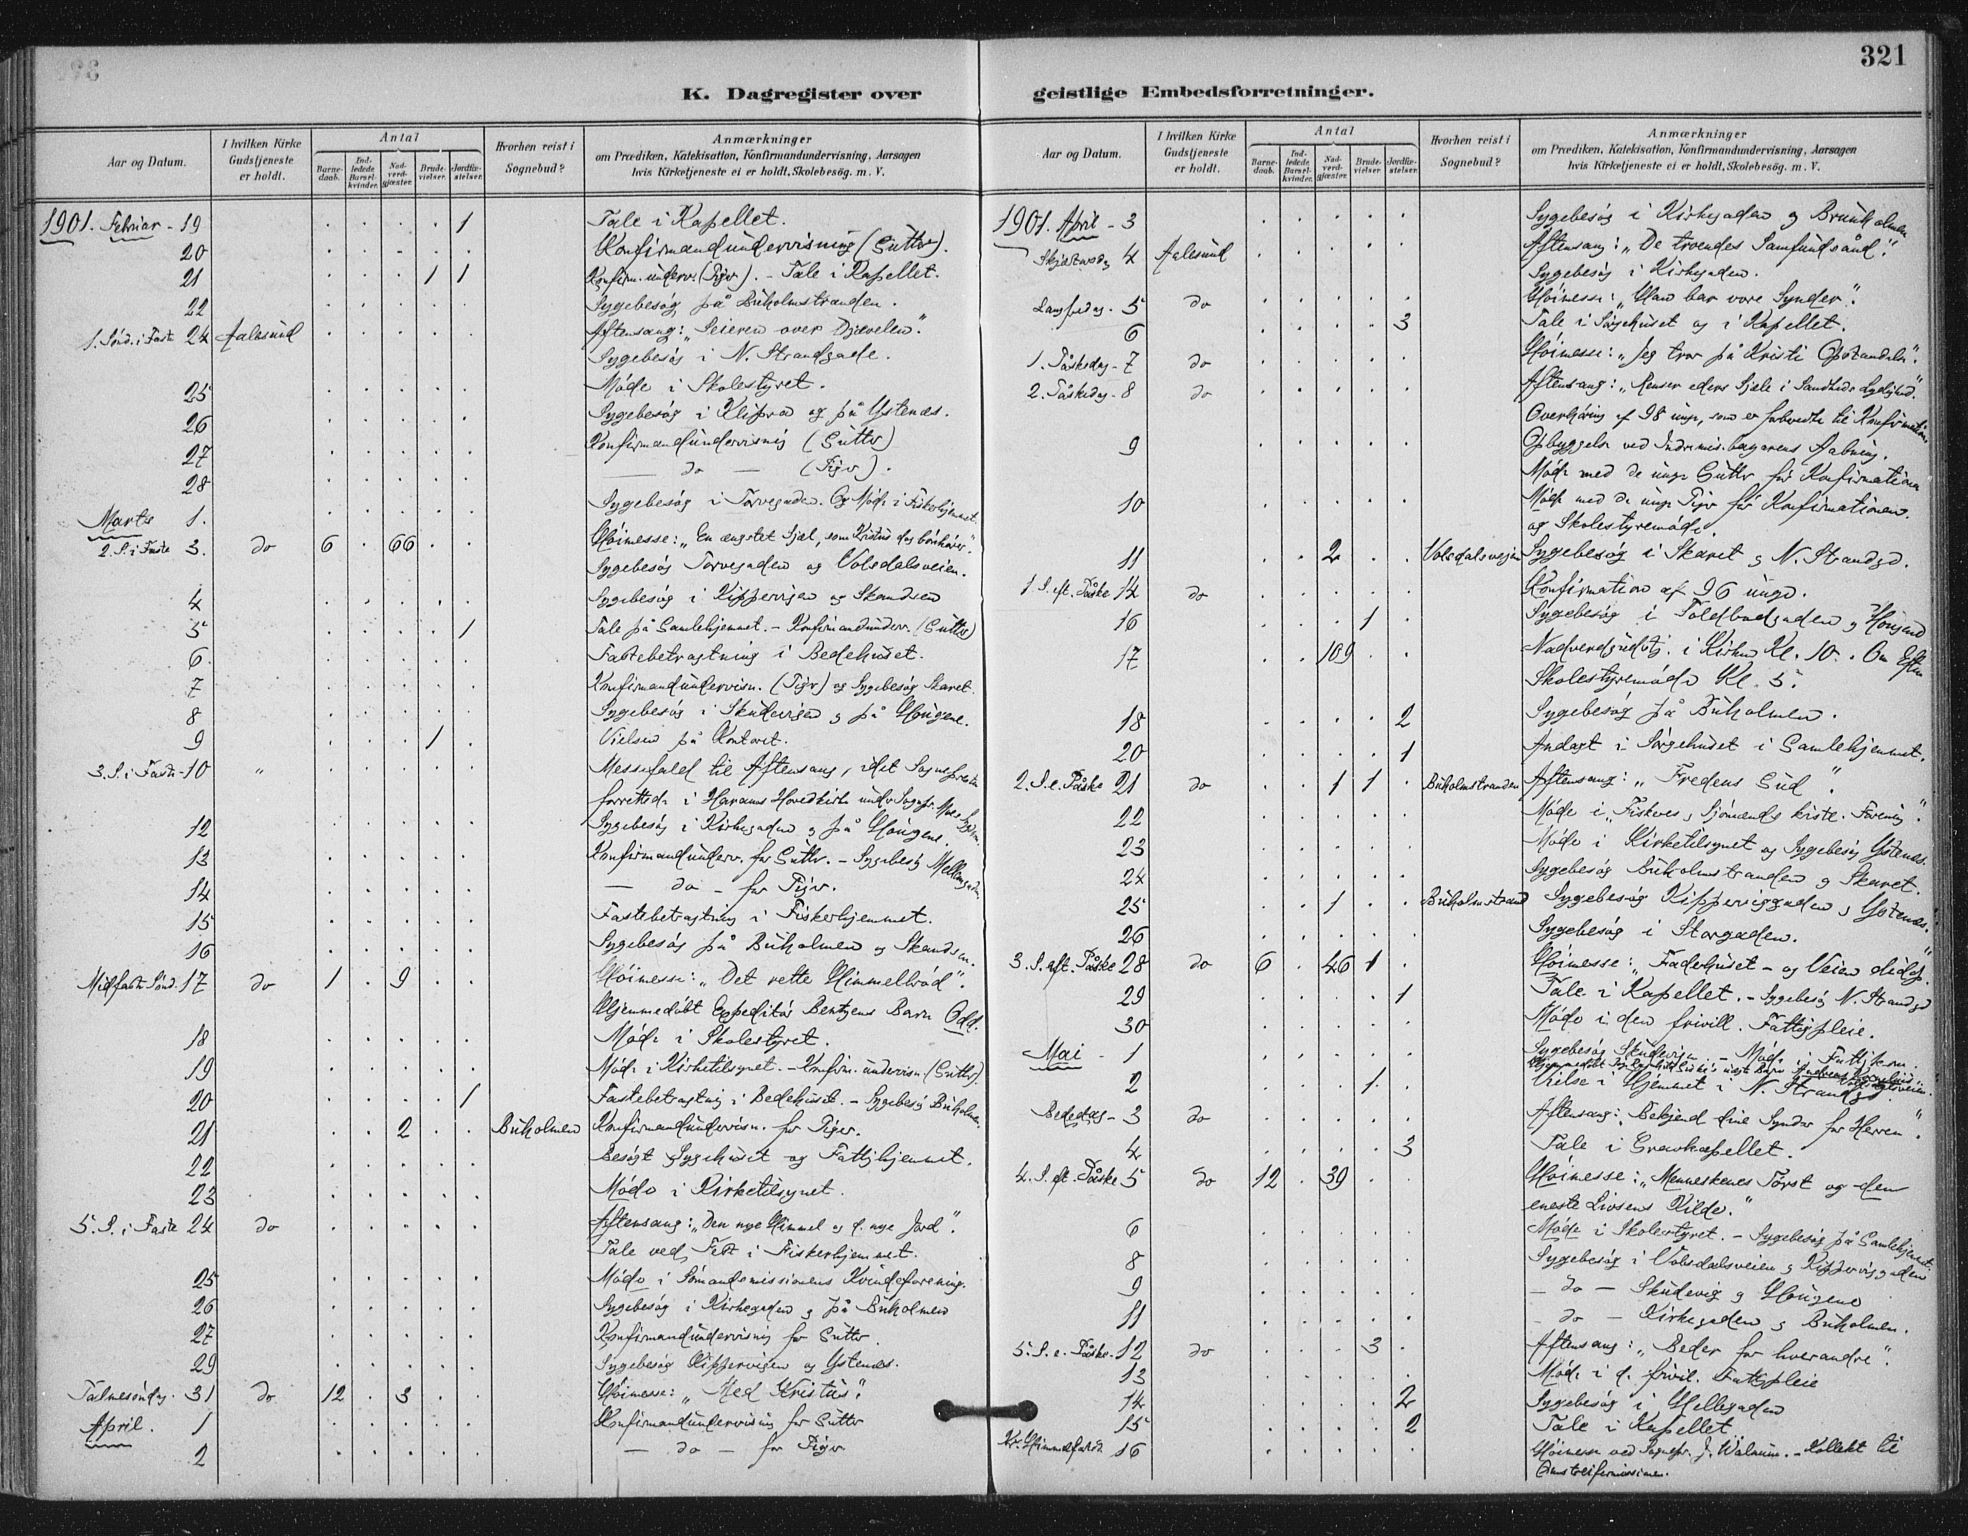 321
K. Dagregister over geistlige Embedsforretninger.
Aar og Datum.
I hvilken Kirke Gudstjeneste er holdt.
Antal
Barne-daab.
Ind-ledede Barsel-kvinder.
Nad-verd-gjæster.
Brude-vielser.
Jordfæ-stelser.
Hvorhen reist i Sognebud?
Anmærkninger
om Prædiken, Katekisation, Konfirmandundervisning, Aarsagen
hvis Kirketjeneste ei er holdt, Skolebesøg. m. V.
1901. Februar - 19 1 Tale i Kapellet.
20 Konfirmandundervisning (Gutter).
21 1 1 Konfirm. underv. (Piger). - Tale i Kapellet.
22 Sygebesøg på Buholmstranden.
1. Sønd. i Faste 24 Aalesund Aftensang: „Seieren over Djævelen."
Sygebesøg i N. Strandgade.
25 Møde i Skolestyret.
26 Sygebesøg i Klipra og på Ystenæs.
27 Konfirmandundervisning (Gutter)
28 — do — (Piger).
Marts 1. Sygebesøg i Torvegaden. Og Møde i Fiskerhjemmet.
2. S. i Faste 3. do 6 66 Høimesse: „En ængstet Sjæl, som Kristus dog bønhører".
Sygebesøg Torvegaden og Volsdalsveien.
4 Sygebesøg i Kippervigen og Skandsen
5 1 Tale på Gamlehjemmet. - Konfirmandunderv. (Gutter)
6. Fastebetragtning i Bedehuset.
7 Konfirmandundervisn. (Piger) og Sygebesøg Skaret.
8 Sygebesøg i Skudevigen og på Hougene.
9 1 Vielsen på Kontoret.
3. S. i Faste - 10 „ Messefald til Aftensang, idet Sognepresten
forrettede i Harams Hovedkirke under Sognepr.
12 Sygebesøg i Kirkegaden og på Hougene.
13 Konfirmandunderv. for Gutter. - Sygebesøg Mellemgaden
14 — do — for Piger.
15 Fastebetragtning i Fiskerhjemmet.
16 Sygebesøg på Buholmen og Skandsen.
Midfaste Sønd. 17 do 1 9 Høimesse: „Det rette Himmelbrød".
Hjemmedøbt Expeditør Bentzens Barn Odd.
18 Møde i Skolestyret.
19 Møde i Kirketilsynet. - Konfirm. undervisn. (Gutter).
20 1 Fastebetragtning i Bedehuset. - Sygebesøg Buholmen.
21 2 Buholmen Konfirmandundervisn. for Piger.
22 Besøgt Sygehuset og Fattighjemmet.
23 Møde i Kirketilsynet.
5. S. i Faste 24 do Aftensang: „Den nye Himmel og d. nye Jord".
Tale ved Fest i Fiskerhjemmet.
25 Møde i Sømandsmissionens Kvindeforening.
26 Sygebesøg i Kirkegaden og på Buholmen
27 Konfirmandundervisning for Gutter.
29 Sygebesøg Kippervigen og Ystenæs.
Palmesøndag. 31 do 12 3 Høimesse: „Med Kristus".
April. 1 Konfirmandundervisning for Gutter
2 — do — for Piger
Aar og Datum.
I hvilken Kirke Gudstjeneste er holdt.
Antal
Barne-daab.
Ind-ledede Barsel-kvinder.
Nad-verd-gjæster.
Brude-vielser.
Jordfæ-stelser.
Hvorhen reist i Sognebud?
Anmærkninger
om Prædiken, Katekisation, Konfirmandundervisning, Aarsagen
hvis Kirketjeneste ei er holdt, Skolebesøg. m. V.
1901. April - 3 Sygebesøg i Kirkegaden og Brunholmen
Skjærtorsdag 4 Aalesund Aftensang: „De troendes Samfundsånd".
Sygebesøg i Kirkegaden.
Langfredag. 5 do Høimesse: „Han bar vore Synder".
6 3 Tale i Sørgehuset og i Kapellet.
1. Påskedag - 7 do Høimesse: „Jeg tror på Kristi Opstandelse".
2. Påskedag - 8 do Aftensang: „Renser eders Sjæle i Sandheds Lydighed".
Overhøring af 98 unge, som er forberedte til Konfirmation
9 Opbyggelse ved Aabning.
Møde med de unge Gutter før Konfirmationen
10 Møde med de unge Piger før Konfirmationen.
og Skolestyremøde.
11 2 Volsdalsveien Sygebesøg i Skaret og N. Strandgd.
1 S. eft. Påske 14 do Konfirmation af 96 unge.
16 1 Sygebesøg i Toldbodgaden og Hougene
17 109 Nadverdgudstj. i Kirken Kl. 10. - Om Eftm
Skolestyremøde Kl. 5.
18 2 Sygebesøg på Buholmen.
20 1 Andagt i Sørgehuset i Gamlehjemmet.
2. S. e. Påske 21 do 1 1 Buholmstranden Aftensang: „Fredens Gud".
22 Møde i „Fiskeres og Sjømænds kriste. Forening".
23 Møde i Kirketilsynet og Sygebesøg Ystenæs.
24 Sygebesøg Buholmstranden og Skaret.
25 1 Buholmstrand Sygebesøg Kipperviggaden og Ystenæs.
26 Sygebesøg i Storgaden.
3. S. eft. Påske 28 do 6 46 1 Høimesse: „Faderhuset - og Veien didop".
29 1 Tale i Kapellet. - Sygebesøg N. Strandgd
30 Møde i den frivill. Fattigpleie.
Mai - 1 Sygebesøg Skudevigen - Møde i Fattigkom.
2 1 Vielse i Hjemmet i N. Strandgd
Bededag - 3 do Aftensang: „Bekjend dine Synder for Herren".
4 3 Tale i Gravkapellet.
4. S. eft. Påske 5 do 12 39 Høimesse: „Menneskenes Tørst og den
eneste Livsens Kilde."
6 Møde i Skolestyret. - Sygebesøg på Gamlehjemmet.
8 Sygebesøg i Volsdalsveien og Kipperviggaden
9 — do — Skudevig og Hougene
11 — do — Kirkegaden og Buholmen.
5. S. e. Påske. 12 do 3 Aftensang: „Beder for hverandre".
13 Møde i d. frivil. Fattigpleie
14 2 Sygebesøg i Hellegaden
15 2 Tale i Kapellet.
Kr. Himmelfartsd. 16 Høimesse ved Sognepr. J. Walnum. - Kollekt til